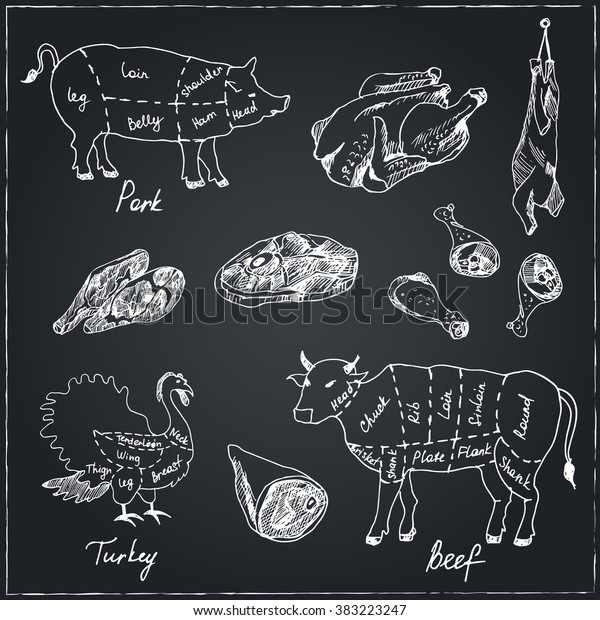 Loin
shoulder
leg
Belly
Ham
Head
Pork
Head
Chuck
Rib
Loin
Sirlain
Round
Brisket
Shank
Plate
Flank
Shank
Beef
Tenderloin
Neck
Wing
Thign
leg
Breast
Turkey
shutterstock
shutterstock
IMAGE ID: 383223247
www.shutterstock.com